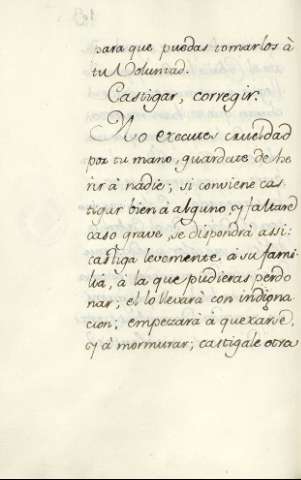 para que puedas tomarlos à
tu Voluntad.
Castigar, corregir.
No executes crueldad
por tu mano, guardate de he
rir à nadie; si conviene cas-
tigar bien à alguno, y faltare
caso grave, se dispondrà assi:
castiga levemente a su fami-
lia, à la que pudieras perdo
nar; el lo llevarà con indigna
cion; empezarà à quexarse,
y à mormurar; castigale otra